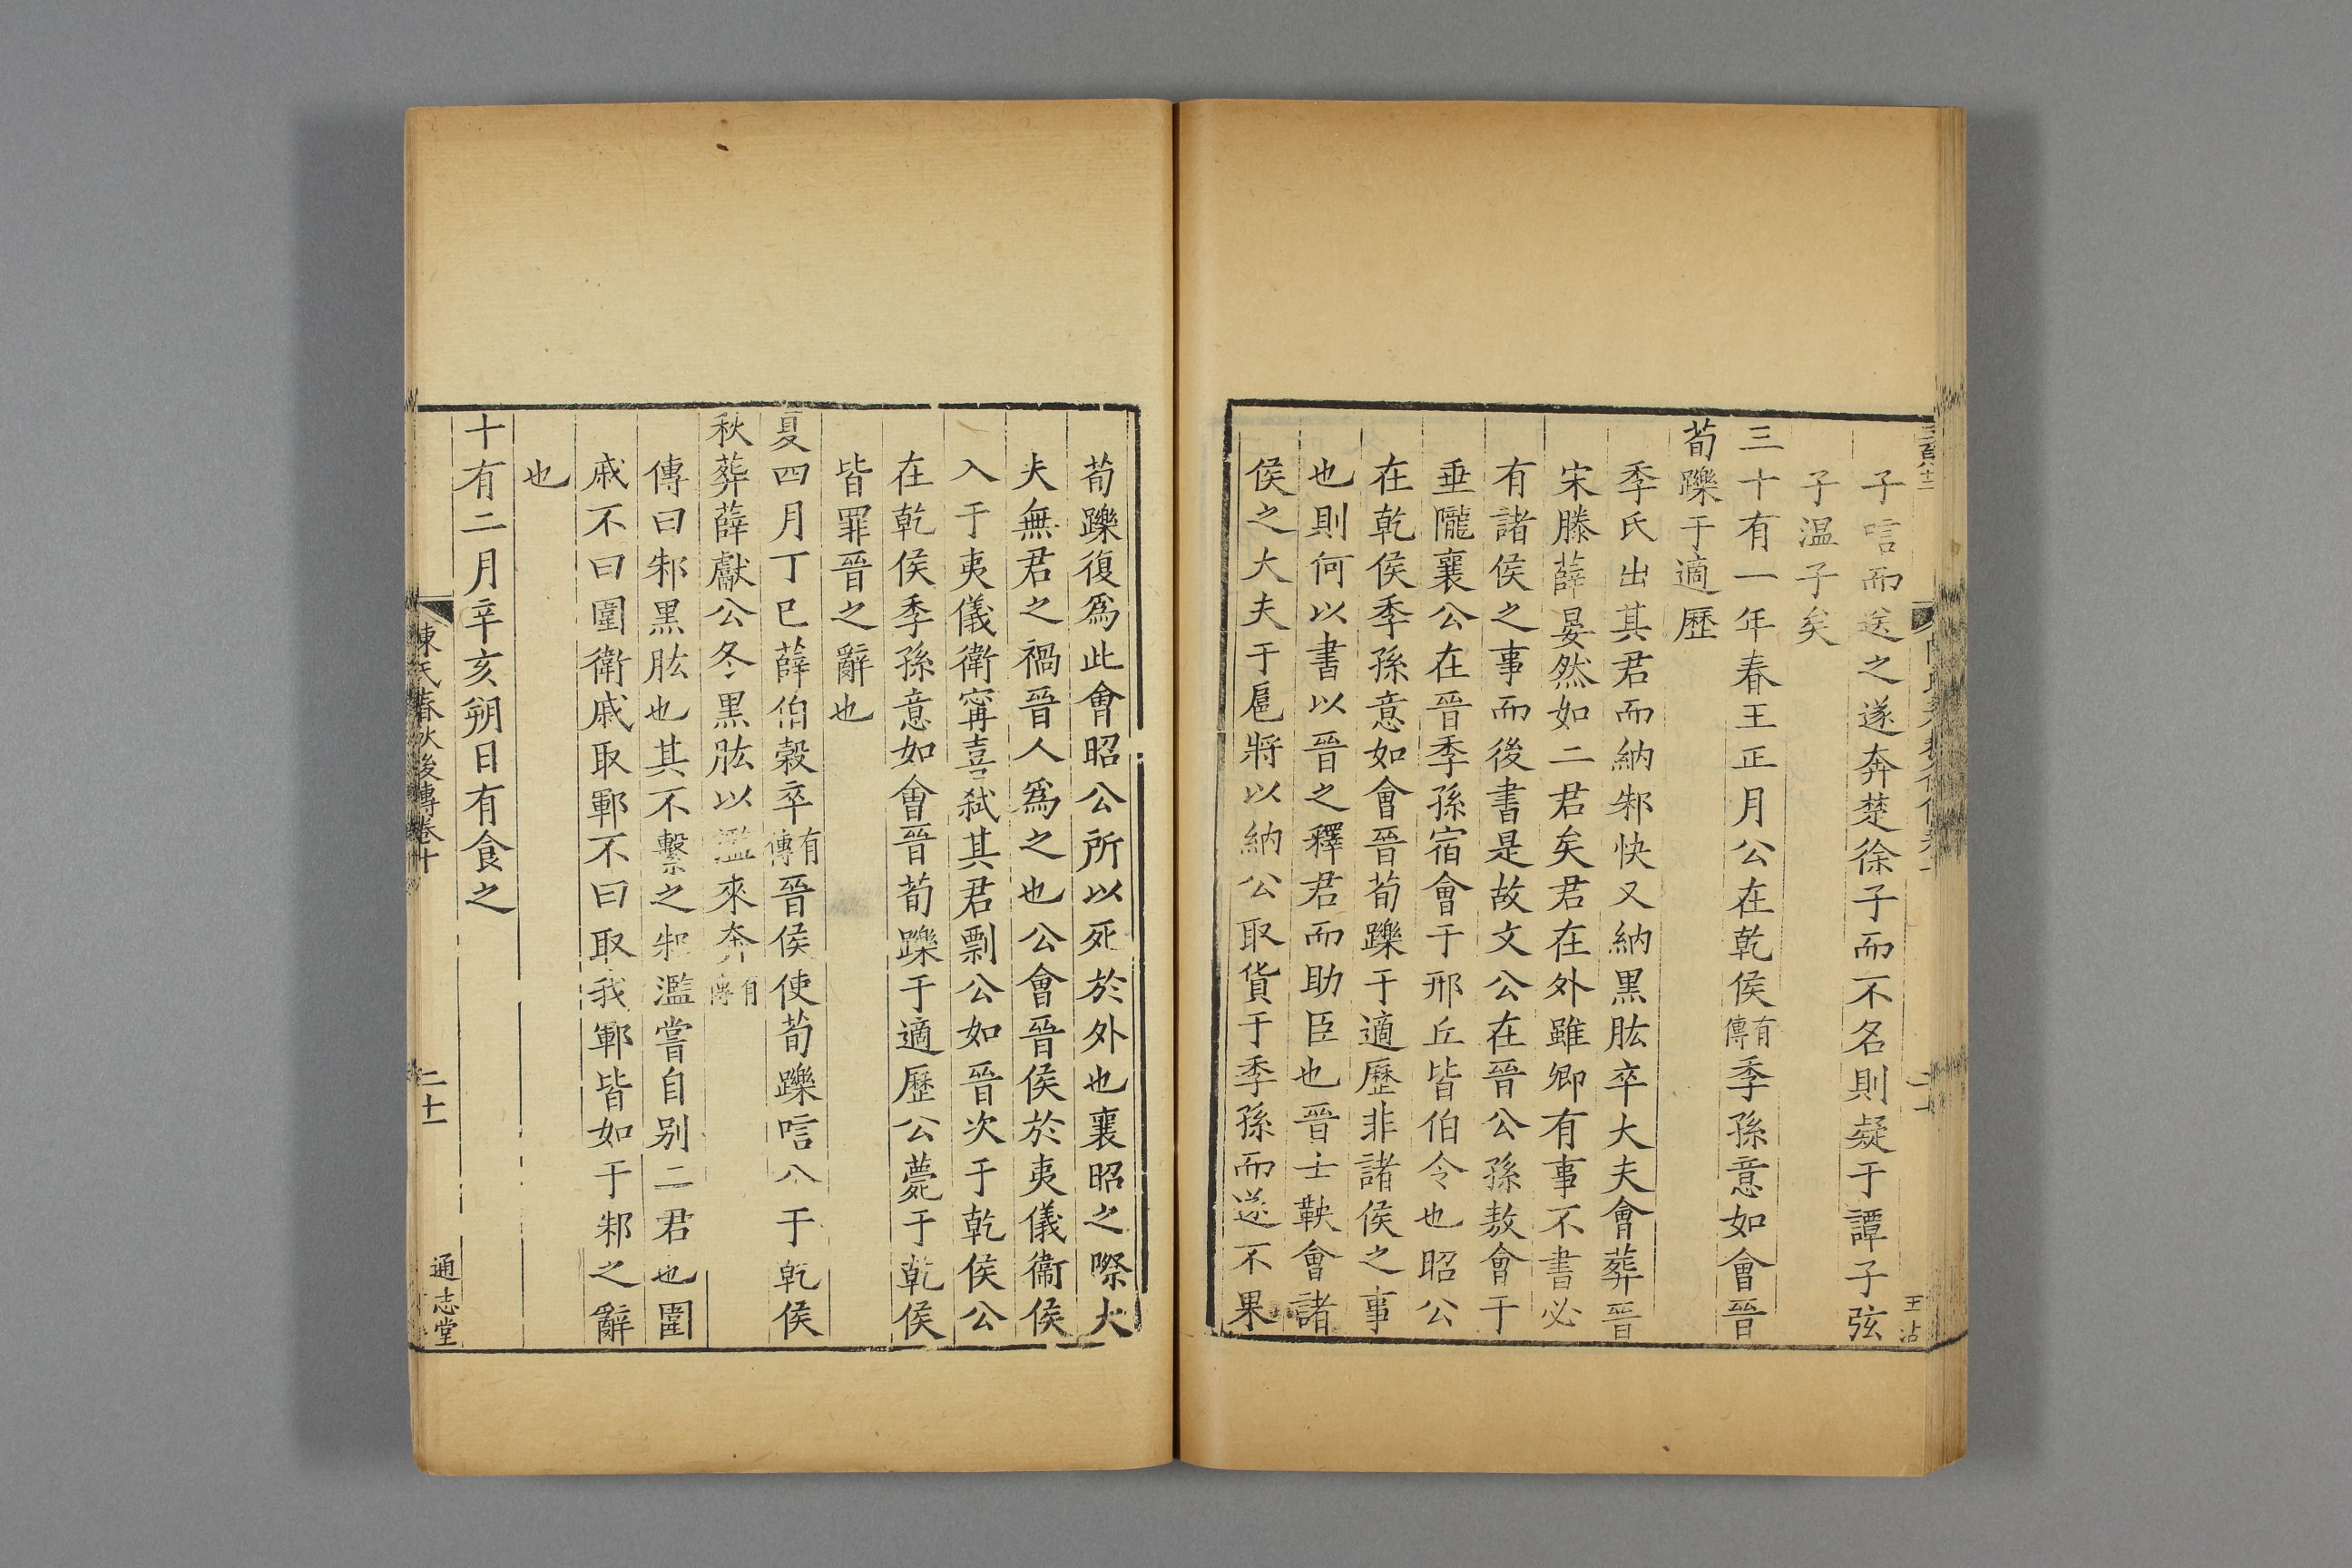 子唁而送之遂奔楚徐子而不名則疑于譚子弦
子温子矣
三十有一年春王正月公在乾侯有傳季孫意如會晉
荀躒于適歷
季氏出其君而納邾快又納黑肱卒大夫會葬晉
宋滕薛晏然如二君矣君在外雖卿有事不書必
有諸侯之事而後書是故文公在晉公孫敖會于
垂隴襄公在晉季孫宿會于邢丘皆伯令也昭公
在乾侯季孫意如會晉荀躒于適歷非諸侯之事
也則何以書以晉之釋君而助臣也晉士鞅會諸
侯之大夫于扈將以納公取貨于季孫而遂不果
王沾
荀躒復爲此會昭公所以死於外也襄昭之際大
夫無君之禍晉人爲之也公會晉侯於夷儀衞侯
入于夷儀衛寗喜弑其君剽公如晉次于乾侯公
在乾侯季孫意如會晉荀躒于適歷公薨于乾侯
皆罪晉之辭也
夏四月丁巳薛伯榖卒有傳晉侯使荀躒唁公于乾侯
秋葬薛獻公冬黑肱以濫來奔有傳
傳曰邾黑肱也其不繫之邾濫嘗自别二君也圍
戚不曰圍衛戚取鄆不曰取我鄆皆如于邾之辭
也
十有二月辛亥朔日有食之
陳氏春秋後傳卷十
二十一
通志堂